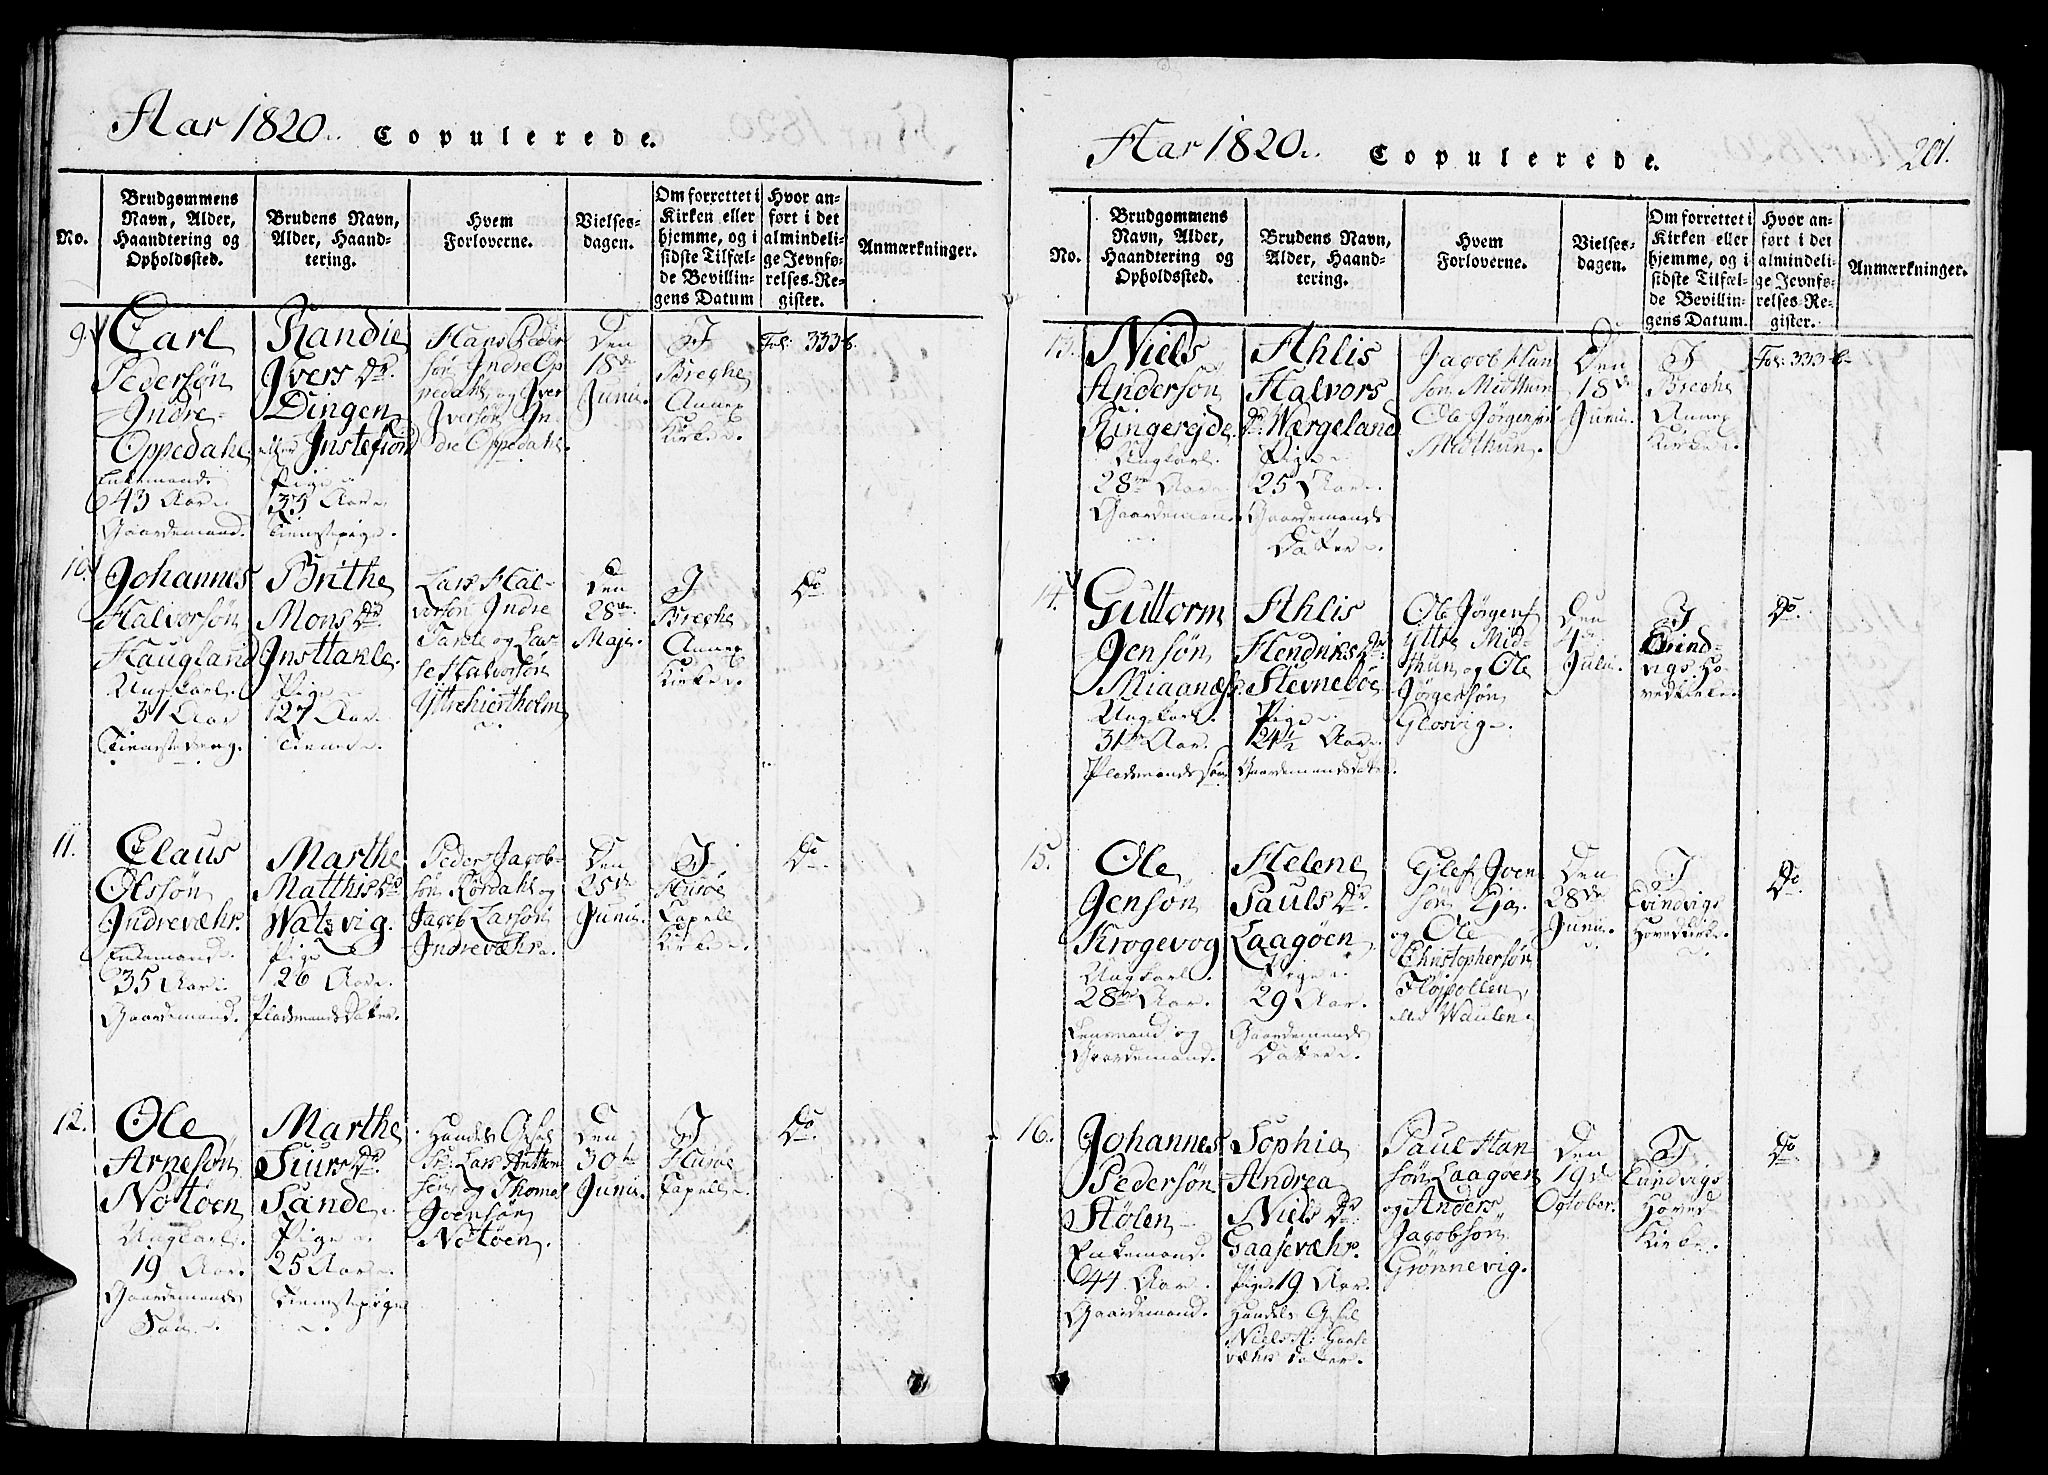 Aar 1820. Copulerede.
No.
Brudgommens
Navn, Alder,
Haandtering og
Opholdssted.
Brudens Navn,
Alder, Haand-
tering.
Hvem
Forloverne.
Vielses-
dagen.
Om forrettet i
Kirken eller
hjemme, og i
sidste Tilfæl-
de Bevillin-
gens Datum
Hvor an-
ført i det
almindeli-
ge Jevnfø-
relses-Re-
gister.
Anmærkninger.
9.
Carl
Pedersøn
Indre
Oppedahl
Enkemand
43 Aar.
Gaardemand.
Randie
Ivers Dr.
Dingen
eller Instefiord
Pige
33 Aar.
Tienstepige.
Hans Peder
søn Indre Op
pedahl, og Iver
Iversøn In-
dre Oppedahl.
Den
18de
Junii.
I
Breche
Annex
Kirke.
Fol: 333 b.
10.
Johannes
Halvorsøn
Haugland
Ungkarl.
31 Aar
Tienstedreng.
Brithe
Mons Dr.
Insttakle.
Pige
27 Aar.
Tiener.
Lars Hal-
vorsøn Indre
Takle og Lar-
s Halvorsøn
Yttrehiertholm
Den
28de
Maje.
I
Breche
Annex
Kirke.
Do
11.
Claus
Olssøn
Indreværh.
Enkemand.
35 Aar.
Gaardemand.
Marthe
Matthis Dr.
Watsvig.
Pige
26 Aar.
Pladsmands Datter.
Peder Jacob-
søn Kørdahl og
Jacob Larsøn
Indreværh.
Den
25de
Junii.
I
Husøe
Capell
Kirke.
Do
12.
Ole
Arnesøn
Notøen
Ungkarl.
19 Aar.
Gaardemands
Søn.
Marthe
Siurs Dr.
Sande.
Pige
25 Aar.
Tienstepige
Handels Gisel
Sr: Lars Antton
sen og Thomas
Joensøn
Notøen.
Den
30te
Junii.
I
Husøe
Capell.
Do.
Aar 1820. Copulerede.
201.
No.
Brudgommens
Navn, Alder,
Haandtering og
Opholdssted.
Brudens Navn,
Alder, Haand-
tering.
Hvem
Forloverne.
Vielses-
dagen.
Om forrettet i
Kirken eller
hjemme, og i
sidste Tilfæl-
de Bevillin-
gens Datum.
Hvor an-
ført i det
almindeli-
ge Jevnfø-
relses-Re-
gister.
Anmærkninger.
13.
Niels
Andersøn
Ringerejde
Ungkarl.
28 Aar
Gaardemand.
Ahlis
Halvors
Dr. Wærgeland
Pige
25 Aar.
Gaardemands
Datter.
Jacob Han
søn Midthun
Ole Jørgensøn
Midthun.
Den
18de
Junii.
I
Breche
Annex
Kirke.
Fol: 333 b
14.
Guttorm
Jensøn
Miaanæs
Ungkarl.
31 Aar.
Pladsmands søn
Ahlis
Hendriks Dr.
Stevneboe
Pige
24 1/2 Aar.
Gaardemands Datter.
Ole Jørgens
Yttre Mid-
thun og Ole
Jørgensøn
Glosvig.
Den
4de
Julii.
I
Evind-
vigs Ho-
vedkirke.
Do.
15.
Ole
Jensøn
Krogevog
Ungkarl.
28 Aar.
Lensmand og
Gaardemand.
Helene
Pauls Dr.
Laagøen
Pige
29 Aar.
Gaardemands
Datter.
Elef Joen
søn Eja.
og Ole
Christophersøn
Fløjvollen
eller Waulen.
Den
28de
Junii.
I
Evindvigs
Hovedkirke.
Do
16.
Johannes
Pedersøn
Stølen
Enkemand.
44 Aar.
Gaardemand.
Sophia
Andrea
Niels Dr.
Gaaseværh.
Pige. 19 Aar.
Handels Gisel
Niels A: Gaase
værhs Datter.
Paul Han
søn Laagøen
og Anders
Jacobsøn
Grønnevig.
Den
19de
October.
I
Evindvigs
Hoved
Kirke.
Do